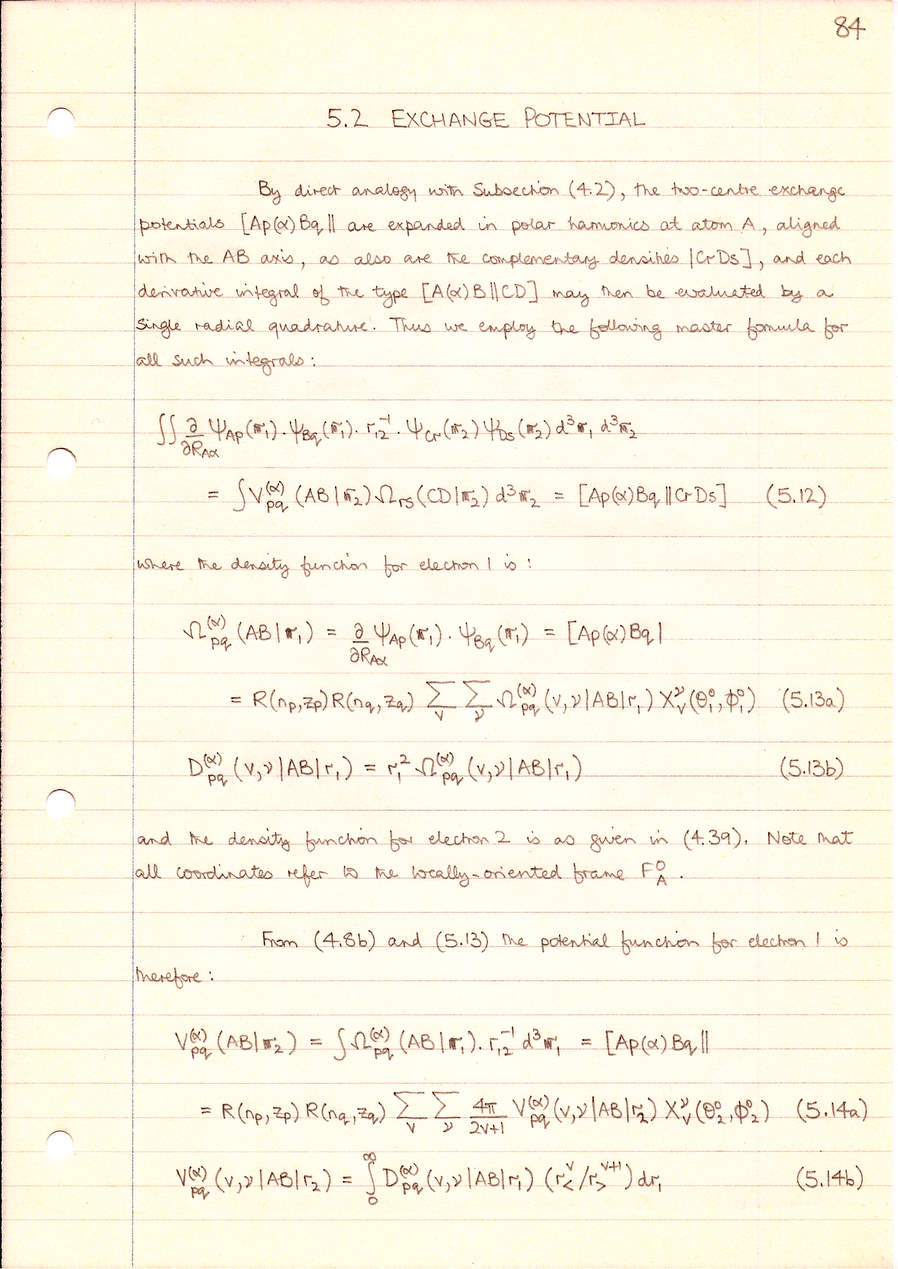 84
5.2 EXCHANGE POTENTIAL
By direct analogy with Subsection (4.2), the two-centre exchange
potentials [Ap(α)Bq‖ are expanded in polar harmonics at atom A, aligned
with the AB axis, as also are the complementary densities |CrDs], and each
derivative integral of the type [A(α)B‖CD] may then be evaluated by a
single radial quadrature. Thus we employ the following master formula for
all such integrals:
∬ ∂/∂R_Aα ψ_Ap(𝐫₁).ψ_Bq(𝐫₁).r₁₂⁻¹.ψ_Cr(𝐫₂)ψ_Ds(𝐫₂)d³𝐫₁ d³𝐫₂
= ∫V_pq^(α)(AB|𝐫₂)Ω_rs(CD|𝐫₂) d³𝐫₂ = [Ap(α)Bq‖CrDs] (5.12)
where the density function for electron 1 is:
Ω_pq^(α)(AB|𝐫₁) = ∂/∂R_Aα ψ_Ap(𝐫₁).ψ_Bq(𝐫₁) = [Ap(α)Bq|
= R(n_p,z_p)R(n_q,z_q) Σ_v Σ_ν Ω_pq^(α)(v,ν|AB|r₁) X_v^ν(θ₁⁰,φ₁⁰) (5.13a)
D_pq^(α)(v,ν|AB|r₁) = r₁² Ω_pq^(α)(v,ν|AB|r₁) (5.13b)
and the density function for electron 2 is as given in (4.39). Note that
all coordinates refer to the locally-oriented frame F_A^0.
From (4.8b) and (5.13) the potential function for electron 1 is
therefore:
V_pq^(α)(AB|𝐫₂) = ∫Ω_pq^(α)(AB|𝐫₁).r₁₂⁻¹ d³𝐫₁ = [Ap(α)Bq‖
= R(n_p,z_p)R(n_q,z_q) Σ_v Σ_ν 4π/(2v+1) V_pq^(α)(v,ν|AB|r₂) X_v^ν(θ₂⁰,φ₂⁰) (5.14a)
V_pq^(α)(v,ν|AB|r₂) = ∫₀^∞ D_pq^(α)(v,ν|AB|r₁) (r_<^v/r_>^(v+1)) dr₁ (5.14b)